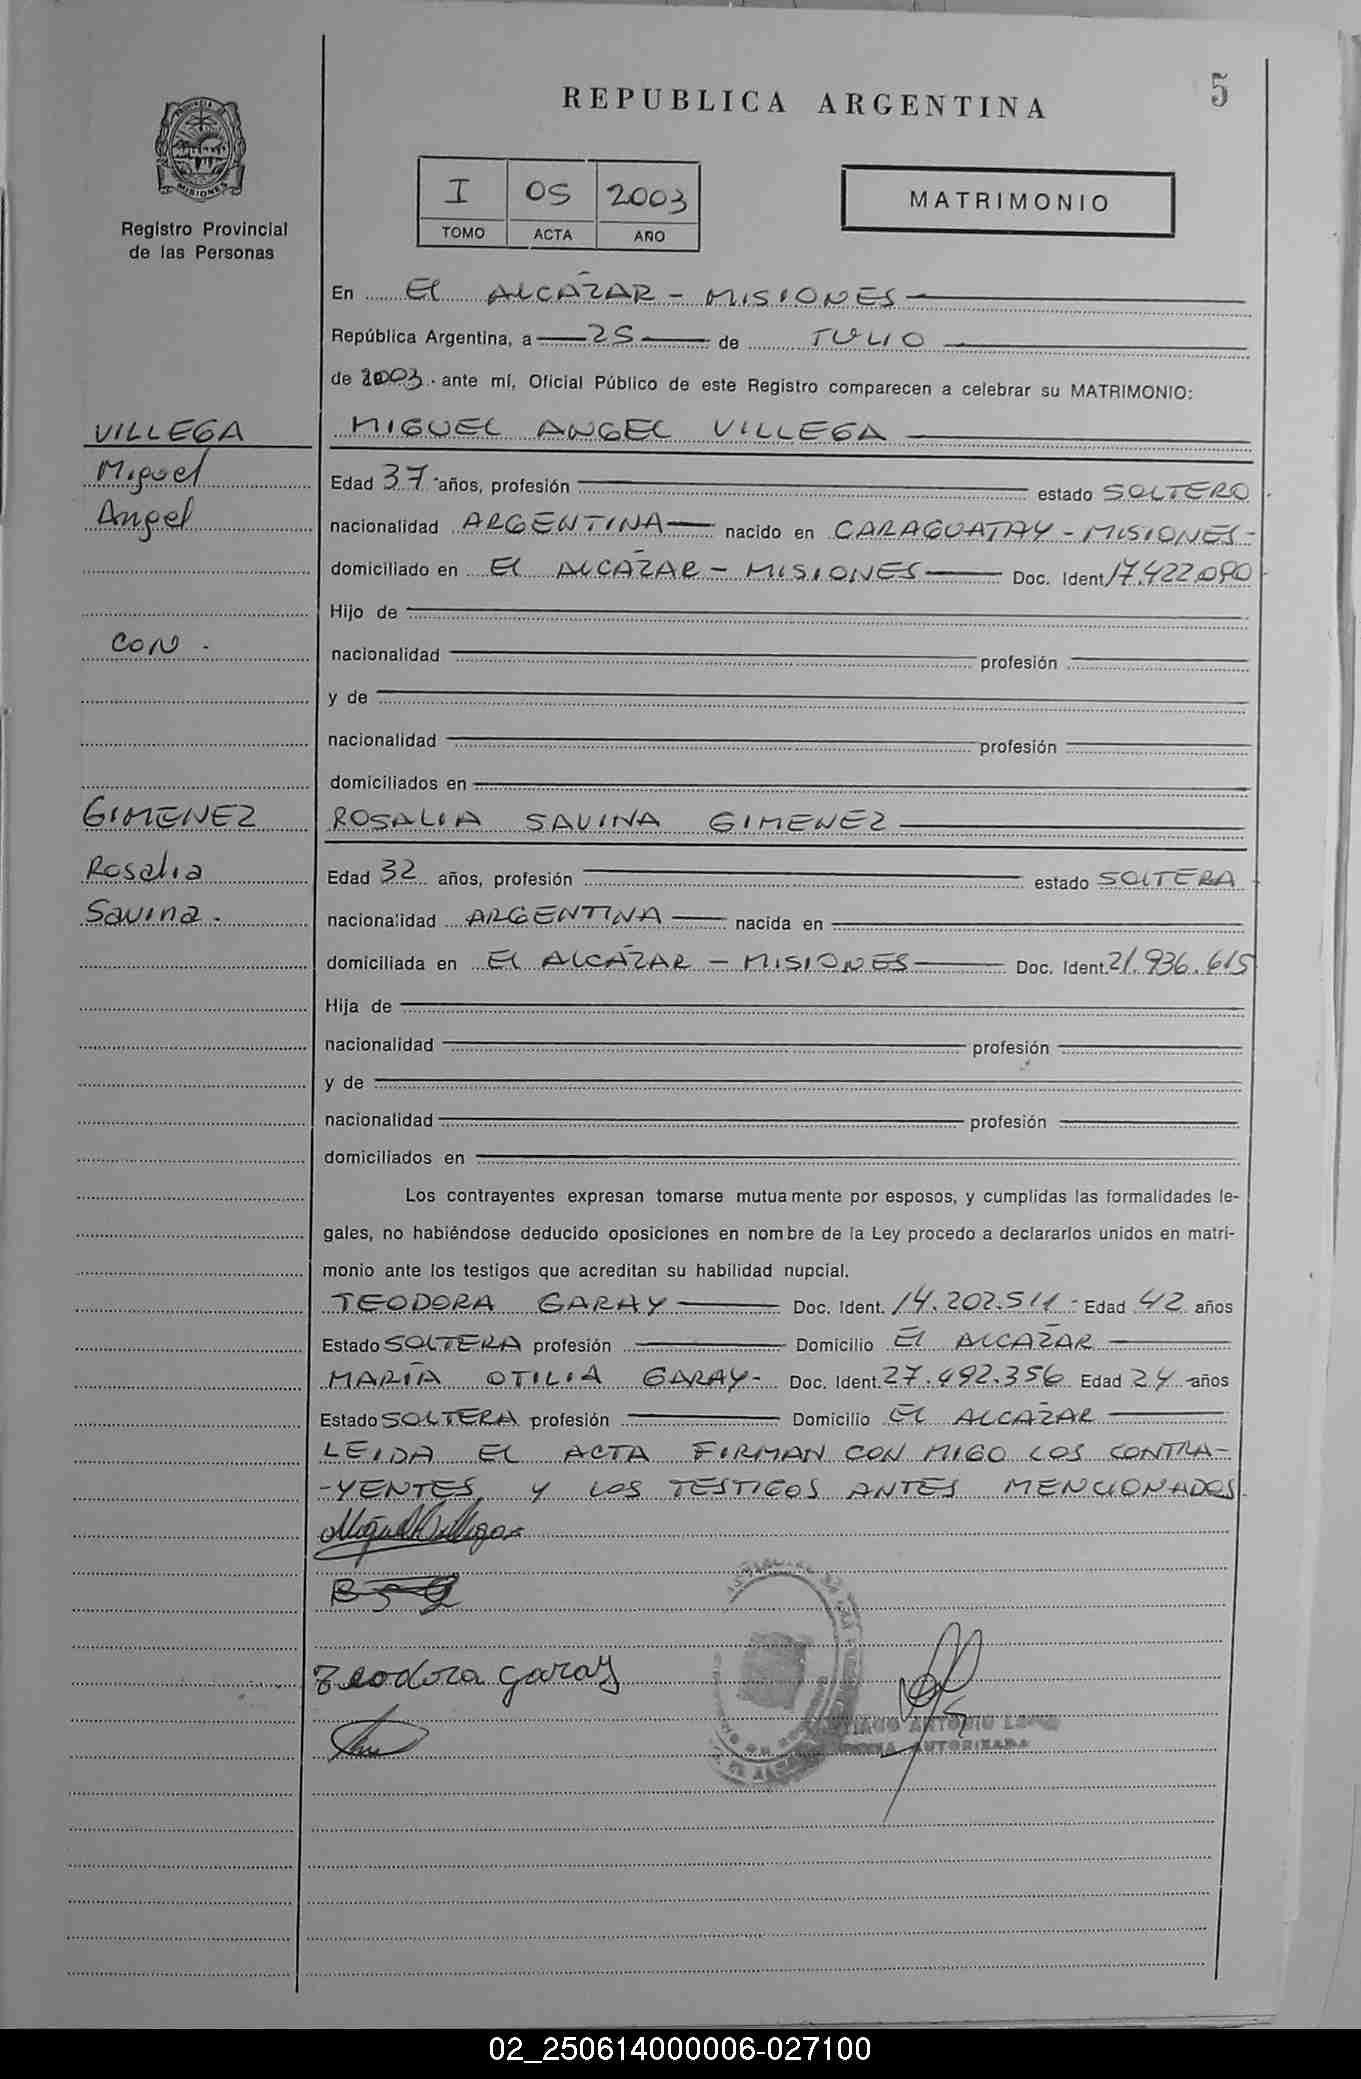 REPUBLICA ARGENTINA
5
PROVINCIA DE
MISIONES
Registro Provincial
de las Personas
I 05 2003
TOMO ACTA AÑO
MATRIMONIO
En El ALCAZAR - MISIONES
República Argentina, a 25 de JULIO
de 2003. ante mí, Oficial Público de este Registro comparecen a celebrar su MATRIMONIO:
VILLEGA
MIGUEL ANGEL VILLEGA
Miguel
Edad 37 años, profesión estado SOLTERO
Angel
nacionalidad ARGENTINA nacido en CARAGUATAY - MISIONES-
domiciliado en El ALCAZAR - MISIONES Doc. Ident. 17.422.090
Hijo de
CON.
nacionalidad profesión
y de
nacionalidad profesión
domiciliados en
GIMENEZ
ROSALIA SAVINA GIMENEZ
Rosalia
Edad 32 años, profesión estado SOLTERA
Savina.
nacionalidad ARGENTINA nacida en
domiciliada en El ALCAZAR - MISIONES Doc. Ident. 21.936.615
Hija de
nacionalidad profesión
y de
nacionalidad profesión
domiciliados en
Los contrayentes expresan tomarse mutuamente por esposos, y cumplidas las formalidades le-
gales, no habiéndose deducido oposiciones en nombre de la Ley procedo a declararlos unidos en matri-
monio ante los testigos que acreditan su habilidad nupcial.
TEODORA GARAY Doc. Ident. 14.202.511- Edad 42 años
Estado SOLTERA profesión Domicilio El ALCAZAR
MARÍA OTILIA GARAY- Doc. Ident. 27.492.356 Edad 24 años
Estado SOLTERA profesión Domicilio El ALCAZAR
LEIDA EL ACTA FIRMAN CON MIGO LOS CONTRA-
-YENTES Y LOS TESTIGOS ANTES MENCIONADOS.
Miguel Villega
Teodora Garay
ANTONIO
AUTORIZADA
02_250614000006-027100